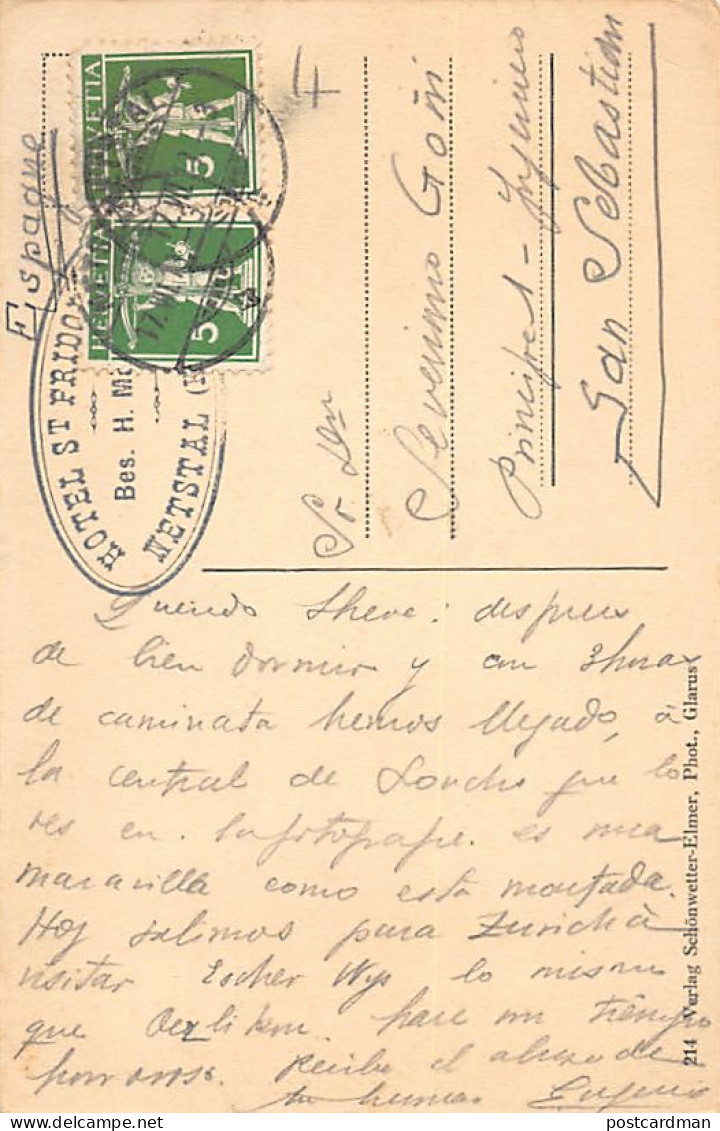 Espagne
HELVETIA 5
HELVETIA 5
17.VI
HOTEL ST FRIDO
Bes. H.
NETSTAL
4
Sr. Dn
Severiano Goñi
Principal - Ingeniero
San Sebastian
Querido Sheve: despues
de bien dormir y con 3 horas
de caminata hemos llegado, á
la central de que lo
ves en la fotografia. es una
maravilla como esta montada.
Hoy salimos para Zurich á
visitar Escher Wys lo mismo
que Oerlikon. hace un tiempo
horroroso. Recibe el abrazo de
tu hermano Eugenio
214 Verlag Schönwetter-Elmer, Phot., Glarus
postcardman